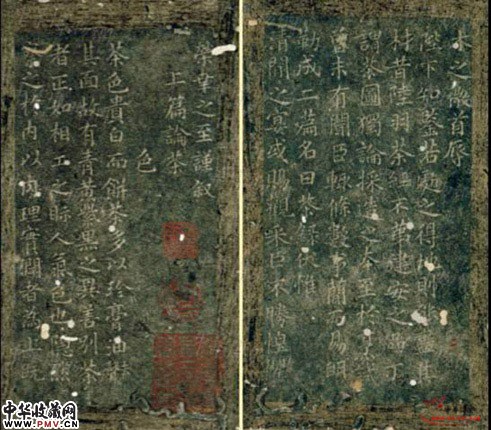 木之微首辱
陛下知鑒若處之得地則能盡其
材昔陸羽茶經不第建安之品丁
謂茶圖獨論採造之本至於烹試
曾未有聞臣輒條數事簡而易明
勒成二篇名曰茶錄伏惟
清閒之宴或賜觀采臣不勝惶懼
榮幸之至謹叙
上篇論茶
色
茶色貴白而餅茶多以珍膏油
其面故有青黃紫黑之異善別茶
者正如相工之眎人氣色也隱然
察之於內以肉理實潤者為上既
中华收藏网
www.PMV.cn